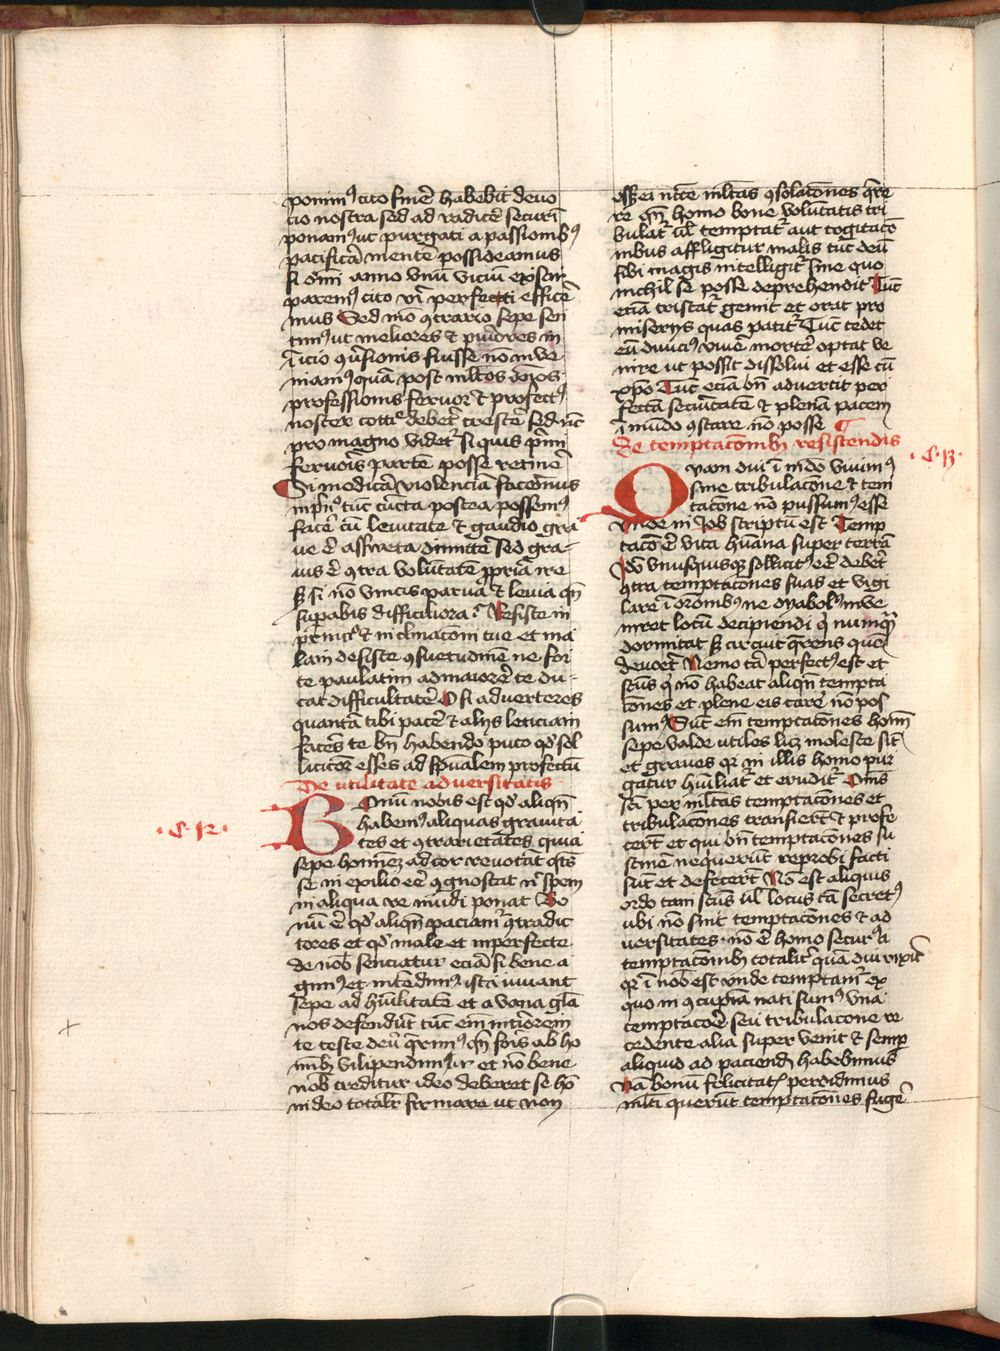 ponim⁹ cito finē habebit deuo
cio nostra sed ad radicē securī
ponam⁹ ut purgati a passionib⁹
pacificā mentē possideamus
si om̄i anno vnū viciū exstir
parem⁹ cito viri perfecti effice
mus Sed mo ꝯtrario sepe sen
tim⁹ ut meliores et puriores in
inicio ꝯuersionis fuisse nō inue
niam⁹ quā post ml̄tos annos
professionis feruor et profect⁹
noster cottidie deberet crescere sed nūc
pro magno videt᷑ si quis primi
feruoris partē posse retinē
Si modicā violenciā faceremus
in prin⁰ tūc cūcta postea possem⁹
facē cū leuitate et gaudio gra
ue ē assueta dimittē sed gra-
uis ē ꝯtra voluntatē propriā ire
sꝫ si nō vincis parua et leuia qn̄
superabis difficiliora Resiste in
principio inclinacōni tue et ma
lam desiste ꝯsuetudinē ne for
te paulatim ad maiorē te du-
cat difficultatē O si aduerteres
quantā tibi pacē et alijs leticiam
facēs te bn̄ habendo puto qd̓ sol
licitior esses ad spūalem profectū
De utilitate aduersitatis
.C.12.
Bonū nobis est qd̓ aliqn̄
habem⁹ aliquas grauita
tes et ꝯtrarietates quia
sepe hominē ad cor reuocāt q̄tus
se in exilio eē ꝯgnoscat nec spem
in aliqua re mūdi ponat Bo
nū ē qd̓ aliqn̄ paciam᷑ ꝯtradic
tores et qd̓ male et inperfecte
de nob̄ senciatur eciā si bene a
gim⁹ et intēdim⁹ ista iuuant
sepe ad hūilitatē et a vana gl̄ia
nos defendūt tūc em̄ interiorem
te teste deū qrim⁹ qn̄ foris ab ho
minibꝫ vilipendim⁹ur et nō bene
nob̄ creditur ideo deberet se hō
in deo totalr̄ firmare ut non
esset ei necesse ml̄tas ꝯsolacōnes q̄re
re qn̄ homo bone voluntatis tri
bulat᷑ ul̄ temptat᷑ aut cogitacō
nibus affligitur malis tūc deū
sibi magis intelligit sine quo
nichil se posse deprehendit Tūc
eciā tristat᷑ gemit et orat pro
miserijs quas patit᷑ Tūc tedet
eū diuci⁹ viuē mortē optat ve
nire ut possit dissolui et esse cū
xp̄o Tūc eciā bn̄ aduertit per
fectā securitatē et plenā pacem
ī mūdo ꝯstare nō posse
De temptacōnibꝫ resistendis
.C.13.
Quam diu ī mūdo viuim⁹
sine tribulacōne et tem
tacōne nō possum⁹ esse
Vnde in Job scriptū est Temp
tacō ē vita hūana super terrā
Ideo vnusquisqꝫ sollicit⁹ eē deberet
ꝯtra temptacōnes suas et vigi
lare ī orōnibus ne dyabolus inue
niret locū decipiendi qui nunqꝫ
dormitat sꝫ circuit querens quē
deuoret Nemo tā perfect⁹ est et
sct̄us qui nō habeat aliqn̄ tempta
cōnes et plene eis carere nō pos
sum⁹ Sūt em̄ temptacōnes homi
sepe valde utiles licꝫ moleste sīt
et graues qr in illis homo pur
gatur hūiliat᷑ et erudit᷑ Oms̄
sct̄i per ml̄tas temptacōnes et
tribulacōnes transierūt et profe
cerūt et qui bn̄ temptacōnes su
stinē nequerūt reprobi facti
sūt et defecerūt Nō est aliquis
ordo tam sct̄us ul̄ locus tā secret⁹
ubi nō sint temptacōnes et ad
uersitates nō ē homo secur⁹ a
temptacōnibꝫ totaliter quā diu vixit
qr ī nob̄ est vnde temptam᷑ ex
quo in ꝯcupīa nati sum⁹ vna
temptacōe seu tribulacōne re
cedente alia super venit et semp
aliquid ad paciend̄ habebimus
Nā bonū felicitatis perdidimus
ml̄ti querūt temptacōnes fugē